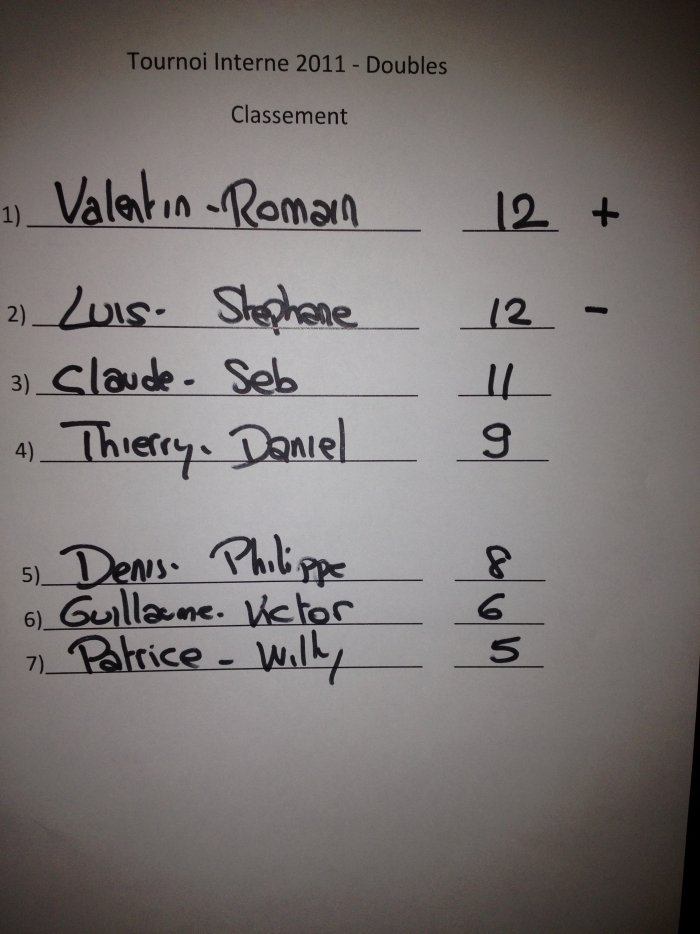 Tournoi Interne 2011 - Doubles
Classement
1) Valentin - Romain 12 +
2) Luis - Stephane 12 -
3) Claude - Seb 11
4) Thierry - Daniel 9
5) Denis - Philippe 8
6) Guillaume - Victor 6
7) Patrice - Willy 5